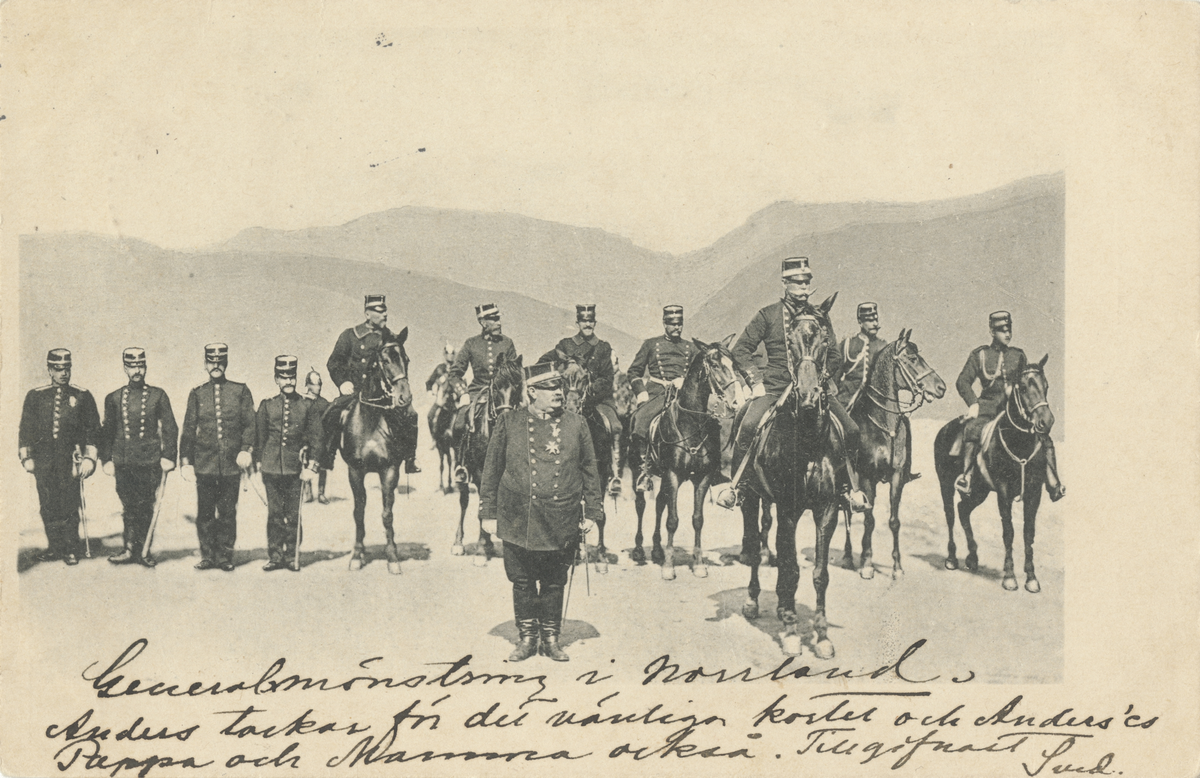 Generalmönstring i Norrland.
Anders tackar för det vänliga kortet och Anders'es
Pappa och Mamma också. Tillgifnast